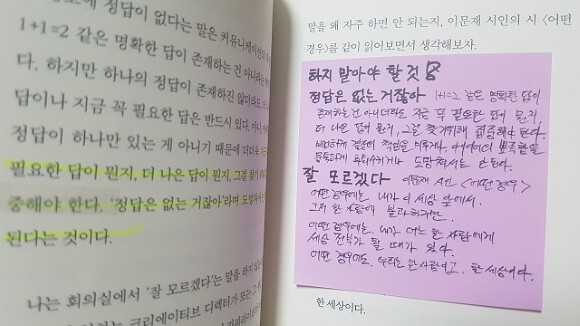 정답이 없다는 말은 커뮤니케이션
1+1=2 같은 명확한 답이 존재하는 건 아니라는
다. 하지만 하나의 정답이 존재하진 않더라도
답이나 지금 꼭 필요한 답은 반드시 있다. 아니
정답이 하나만 있는 게 아니기 때문에 더더욱
필요한 답이 뭔지, 더 나은 답이 뭔지, 그걸 찾기
중해야 한다. '정답은 없는 거잖아'라며 도망쳐
된다는 것이다.
나는 회의실에서 '잘 모르겠다'는 말을 하지
크리에이티브 디렉터가
말을 왜 자주 하면 안 되는지, 이문재 시인의 시 <어떤
경우>를 같이 읽어보면서 생각해보자.
하지 말아야 할 것
정답은 없는 거잖아 1+1=2 같은 명확한 답이
존재하는 건 아니더라도 지금 꼭 필요한 답이 뭔지,
더 나은 답이 뭔지, 그걸 찾기위해 집중해야 한다.
책임을 미루거나, 아이디어의 부족함을
도망쳐서는 안된다.
잘 모르겠다 이문재 시인 <어떤 경우>
어떤 경우에는 내가 이 세상 앞에서
그저 한 사람에 불과하지만
어떤 경우에는 내가 어느 한 사람에게
세상 전부가 될 때가 있다.
어떤 경우에도 우리는 한 사람이고, 한 세상이다.
한 세상이다.